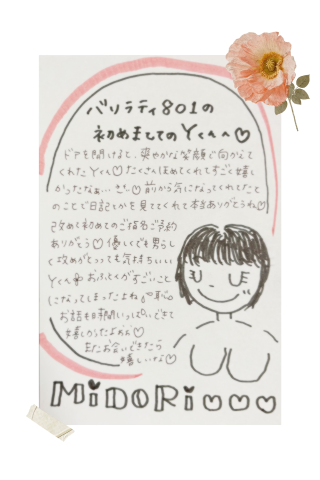 バリラティ801の
初めましてのYくんへ♡
ドアを開けると、爽やかな笑顔で向かえて
くれたYくん♡たくさんほめてくれてすごく嬉し
かったなぁ… 前から気になってくれてたと
のことで日記とかを見ててくれて本当ありがとうね♡
改めて初めてのご指名ご予約
ありがとう♡優しくでも男らし
く攻めがとっっても気持ちいいい
Yくん おふくがすごいこと
になってしまったよね
お話も時間いっぱいできて
嬉しかったよぉん♡
またお会いできたら
嬉しいな♡
MiDORi♡♡♡